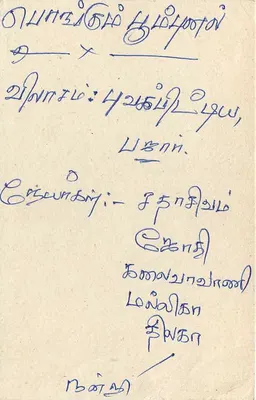 பொங்கும் பூம்புனல்
x
விலாசம் : புவக்பிட்டிய,
பஜார்.
நேயர்கள் :- சதாசிவம்
ஜோதி
கலைவாவாணி
மல்லிகா
திலகா
நன்றி